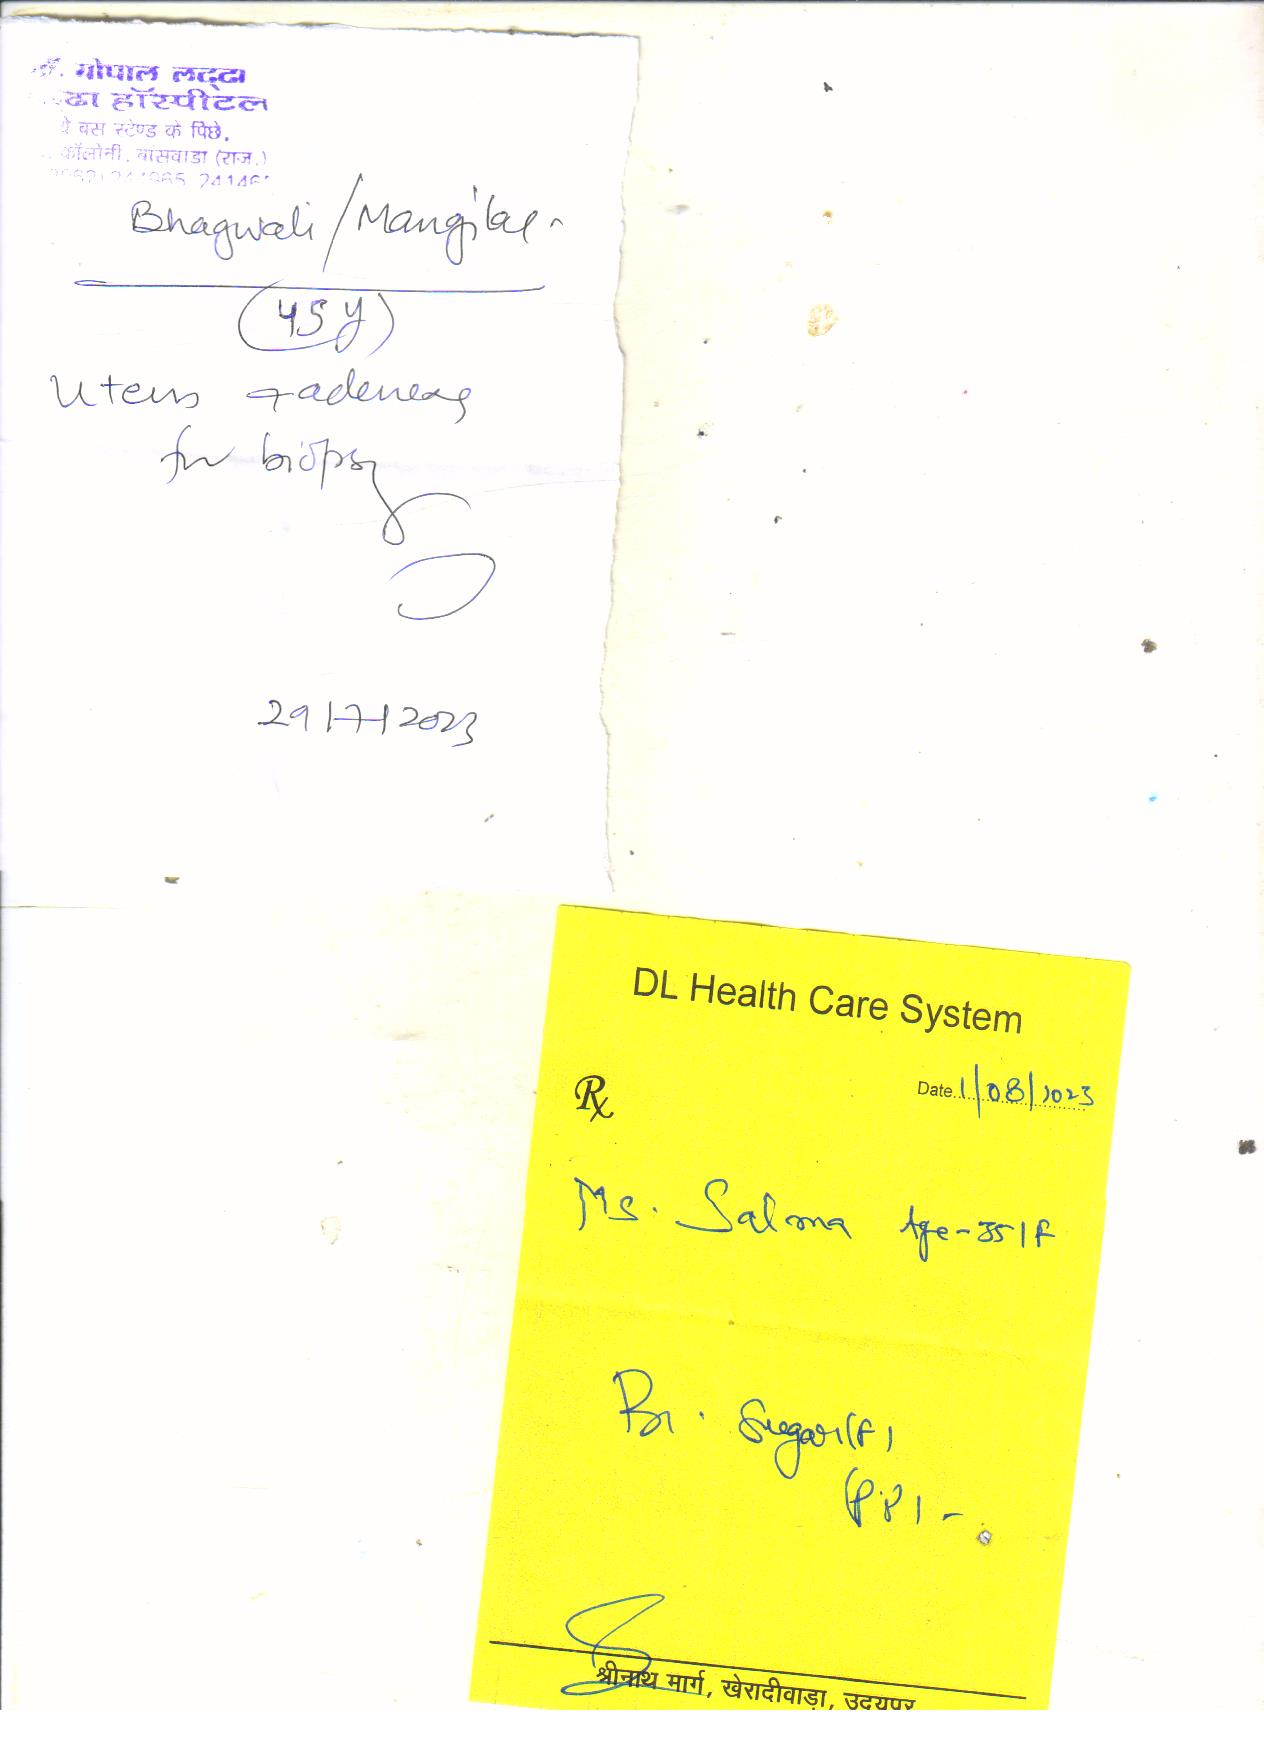 डॉ. गोपाल लद्दा
ढा हॉस्पीटल
ये बस स्टेण्ड के पिछे,
कॉलोनी, बांसवाडा (राज.)
Bhagwali/Mangilal
(45 y)
Uterus + adenexa
for biopsy
29/7/2023
DL Health Care System
Rx
Date 1/08/2023
Ms. Salma Age-35/F
Bl. Sugar (F)
(PP) -
श्रीनाथ मार्ग, खेरादीवाड़ा, उदयपुर